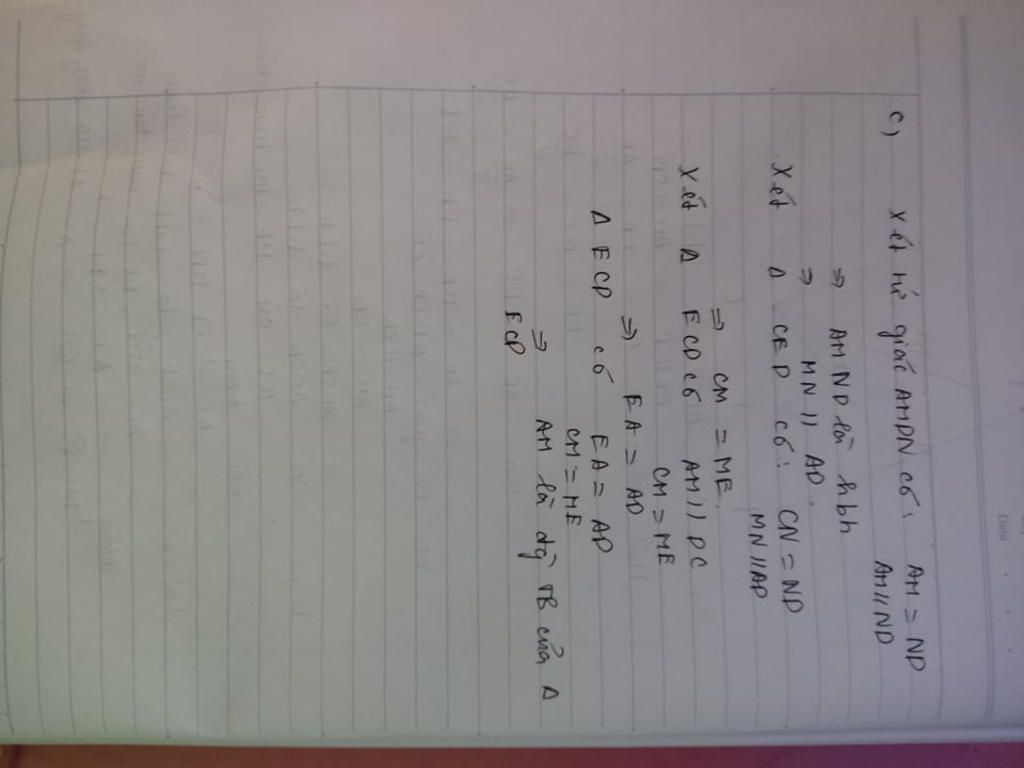 c) Xét tứ giác AMDN có: AM = ND
AM // ND
⇒ AMND là hbh
⇒ MN // AD.
Xét Δ CED có: CN = ND
MN // AD
⇒ CM = ME.
Xét Δ ECD có AM // DC
CM = ME
⇒ EA = AD
Δ ECD có EA = AD
CM = ME
⇒ AM là đg TB của Δ
ECD
Date